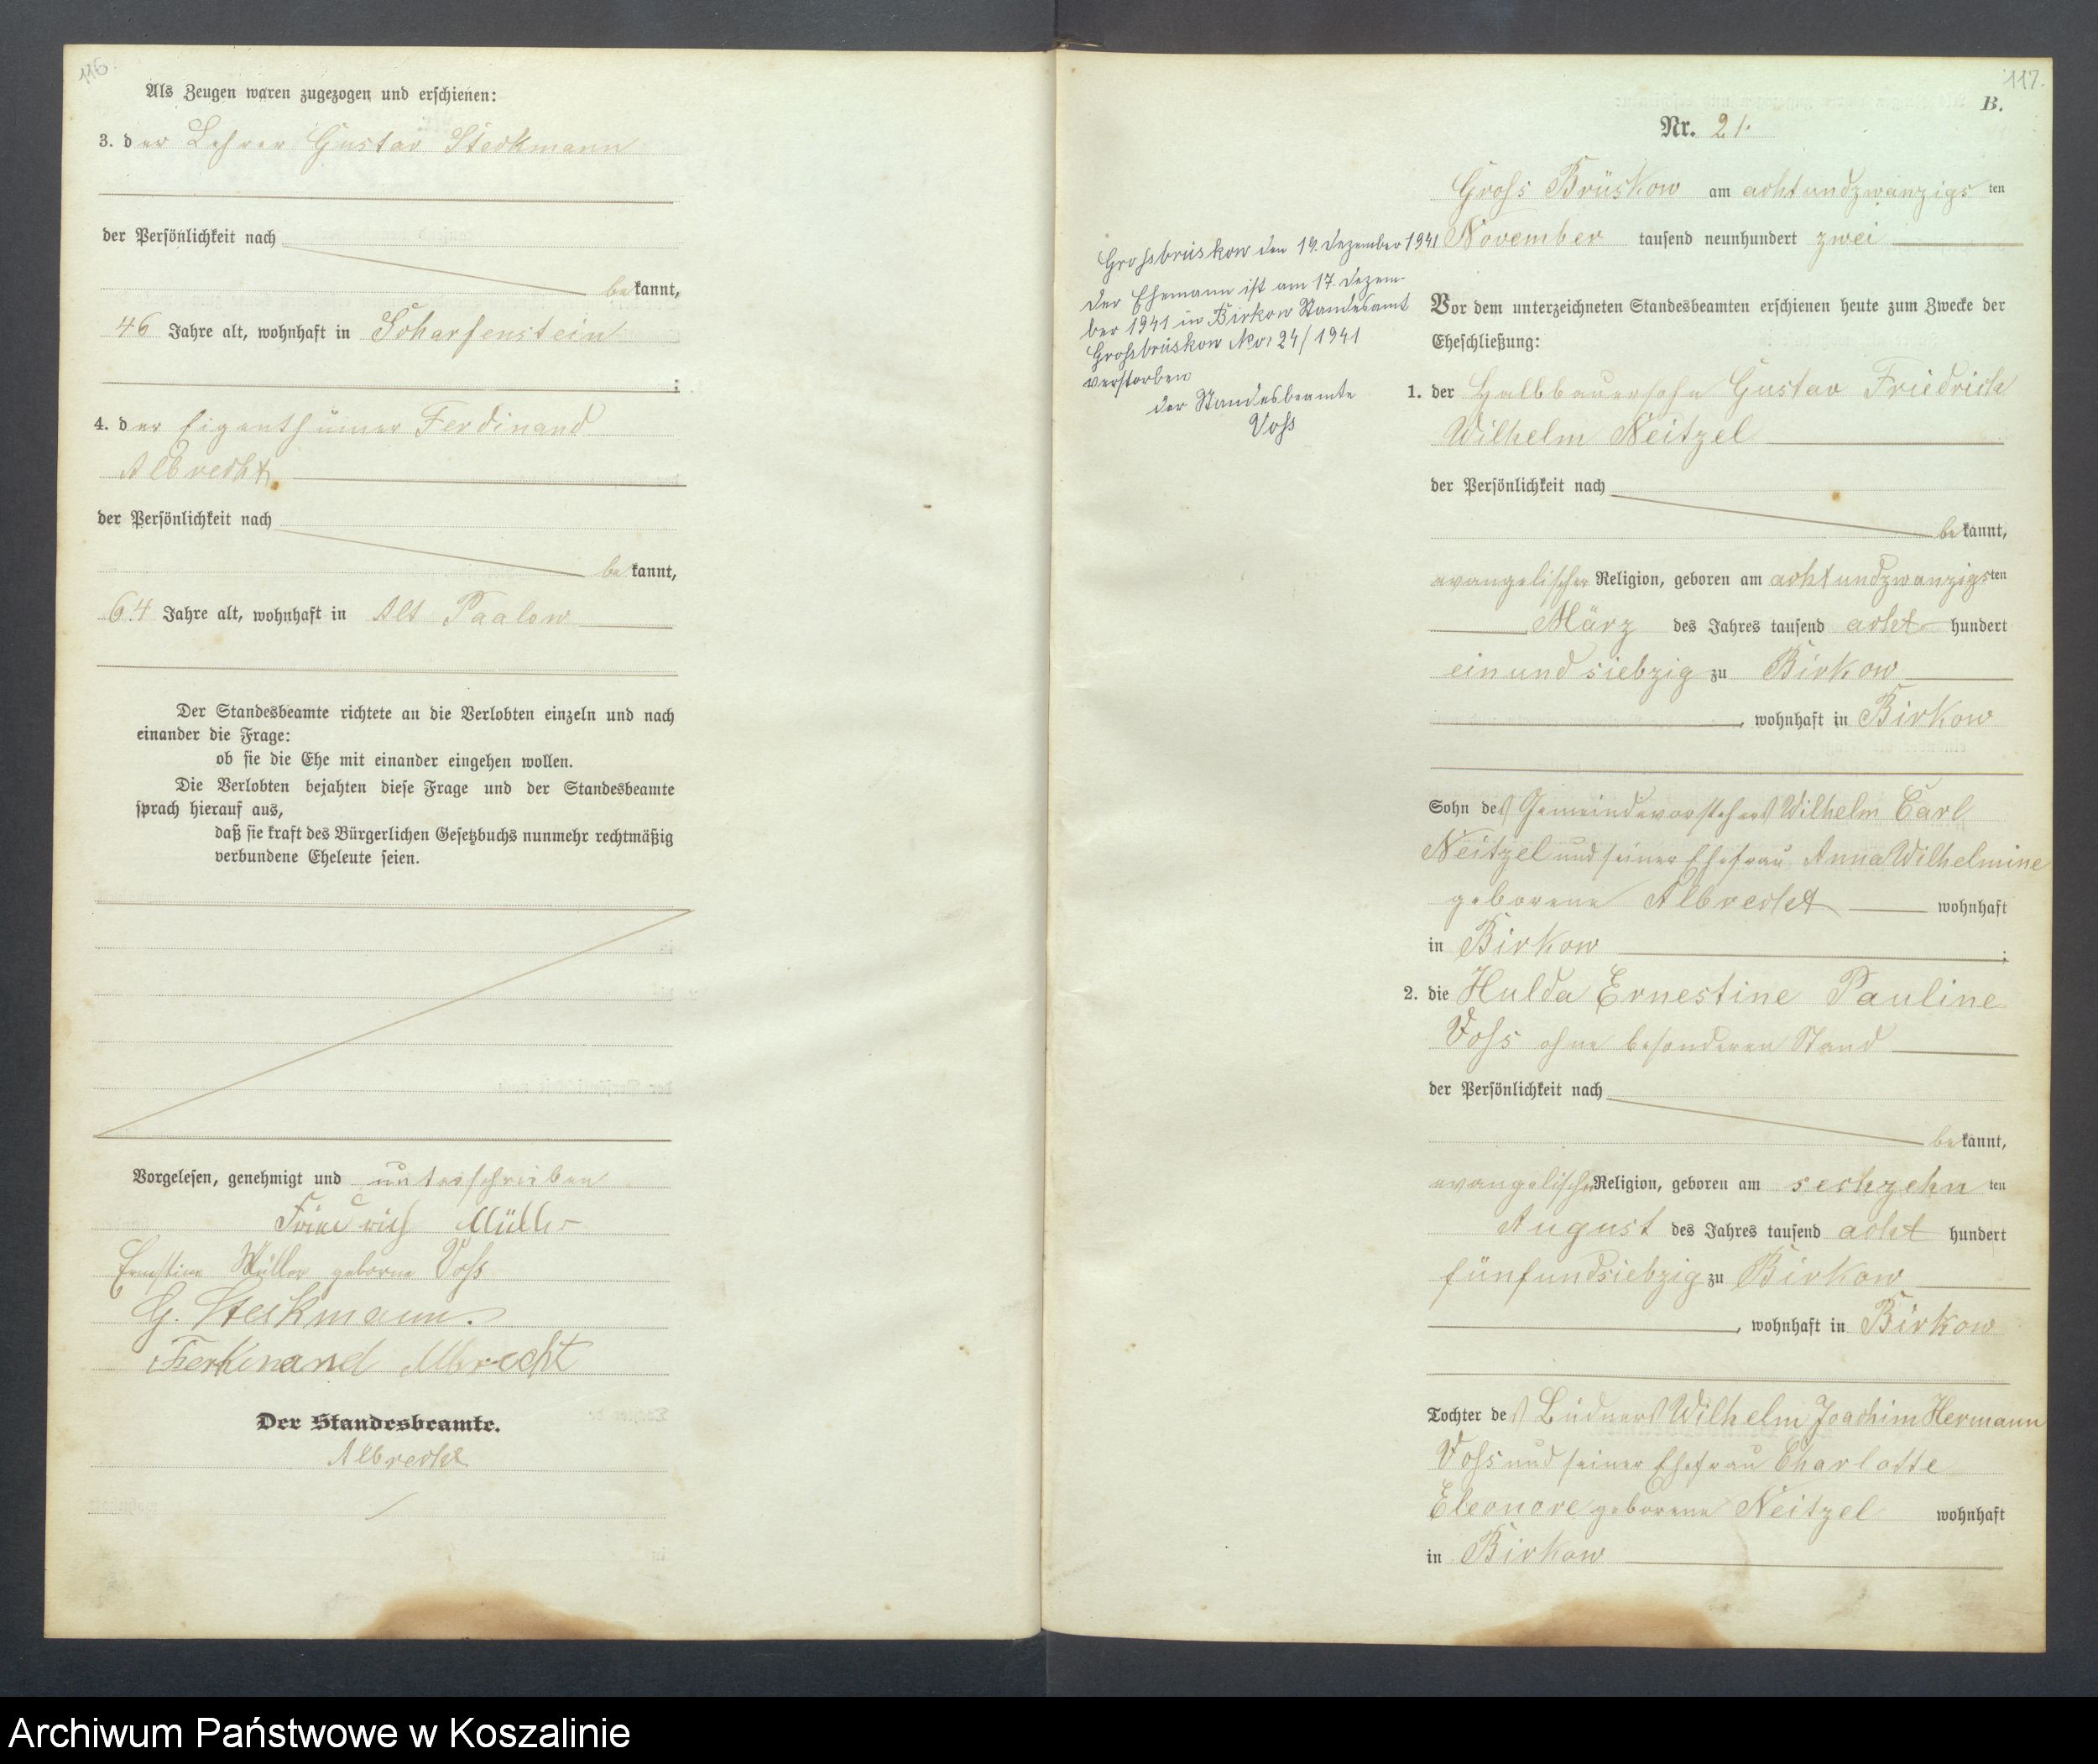 116.
Als Zeugen waren zugezogen und erschienen:
3. der Lehrer Gustav Steckmann
der Persönlichkeit nach
bekannt,
46 Jahre alt, wohnhaft in Scharfenstein
;
4. der Eigenthümer Ferdinand
Albrecht
der Persönlichkeit nach
bekannt,
64 Jahre alt, wohnhaft in Alt Paalow
Der Standesbeamte richtete an die Verlobten einzeln und nach
einander die Frage:
ob sie die Ehe mit einander eingehen wollen.
Die Verlobten bejahten diese Frage und der Standesbeamte
sprach hierauf aus,
daß sie kraft des Bürgerlichen Gesetzbuchs nunmehr rechtmäßig
verbundene Eheleute seien.
Vorgelesen, genehmigt und unterschrieben
Friedrich Müller
Ernestine Müller geborne Voß
G. Steckmann.
Ferdinand Albrecht
Der Standesbeamte.
Albrecht
117.
B.
Nr. 21.
Groß Brüskow am achtundzwanzigsten
November tausend neunhundert zwei
Großbrüskow den 19. Dezember 1941
Der Ehemann ist am 17. Dezem-
ber 1941 in Birkow Standesamt
Großbrüskow No: 24/1941
verstorben
der Standesbeamte
Voß
Vor dem unterzeichneten Standesbeamten erschienen heute zum Zwecke der
Eheschließung:
1. der Halbbauersohn Gustav Friedrich
Wilhelm Neitzel
der Persönlichkeit nach
bekannt,
evangelischer Religion, geboren am achtundzwanzigsten
März des Jahres tausend acht hundert
einundsiebzig zu Birkow
, wohnhaft in Birkow
Sohn des Gemeindevorstehers Wilhelm Carl
Neitzel und seiner Ehefrau Anna Wilhelmine
geborene Albrecht wohnhaft
in Birkow ;
2. die Hulda Ernestine Pauline
Voß ohne besonderen Stand
der Persönlichkeit nach
bekannt,
evangelischer Religion, geboren am sechzehnten
August des Jahres tausend acht hundert
fünfundsiebzig zu Birkow
, wohnhaft in Birkow
Tochter des Büdners Wilhelm Joachim Hermann
Voß und seiner Ehefrau Charlotte
Eleonore geborene Neitzel wohnhaft
in Birkow
Archiwum Państwowe w Koszalinie